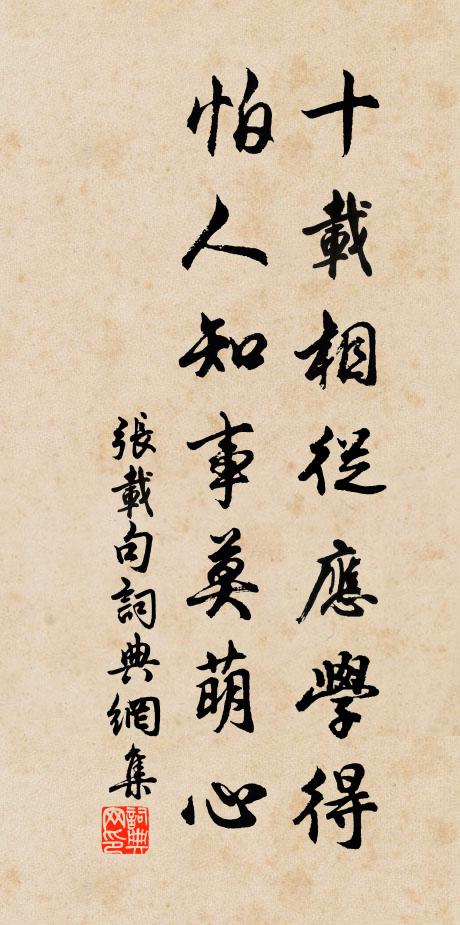 十載相從應學得
怕人知事莫萌心
張載句詞典網集
詞典
网印